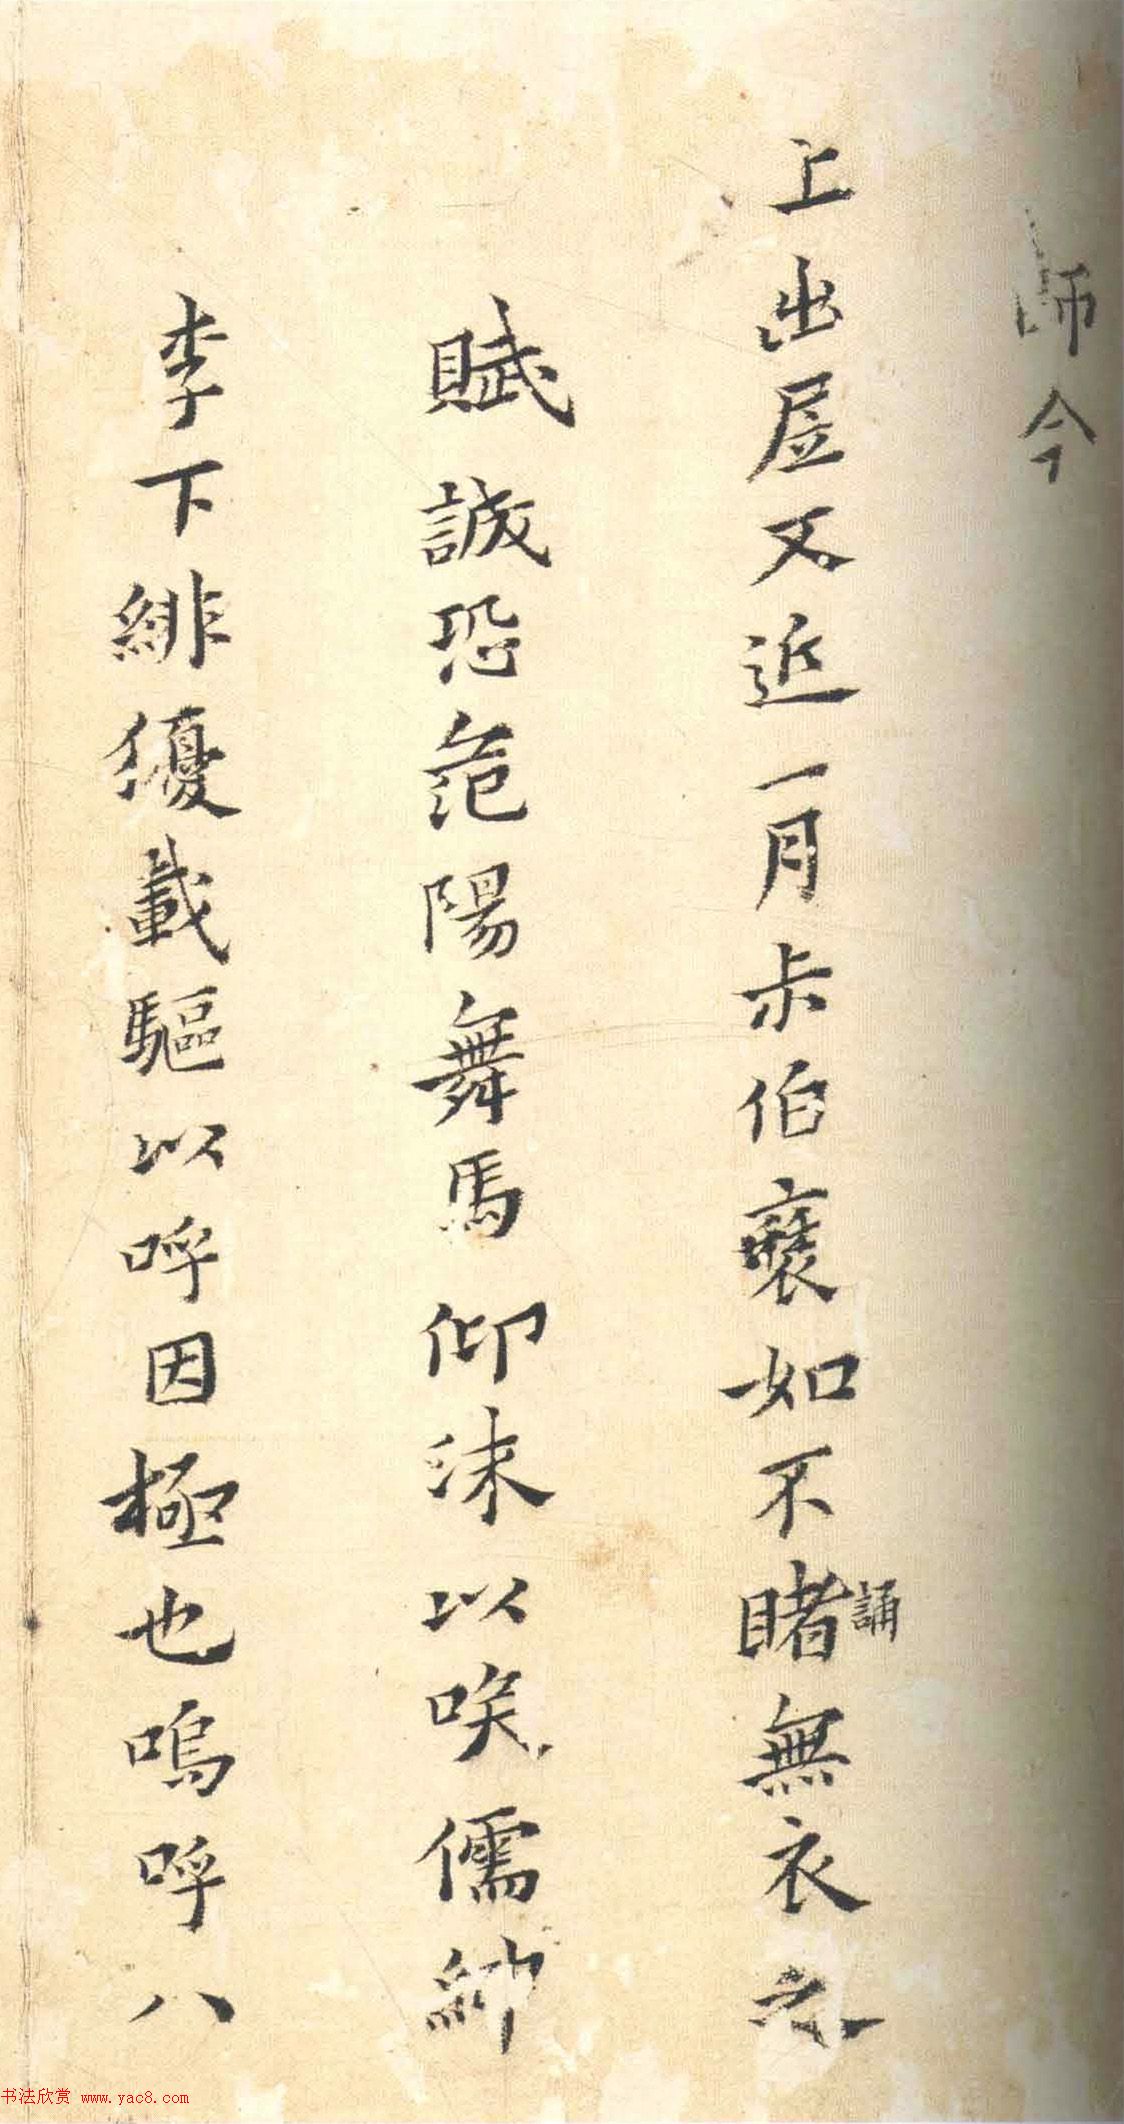 師今
上出屋又近一月未伯褒如不睹無衣之
誦
賦誠恐范陽舞馬仰沫以唉儒紳
李下緋優載驅以呼因極也嗚呼八
书法欣赏 www.yac8.com